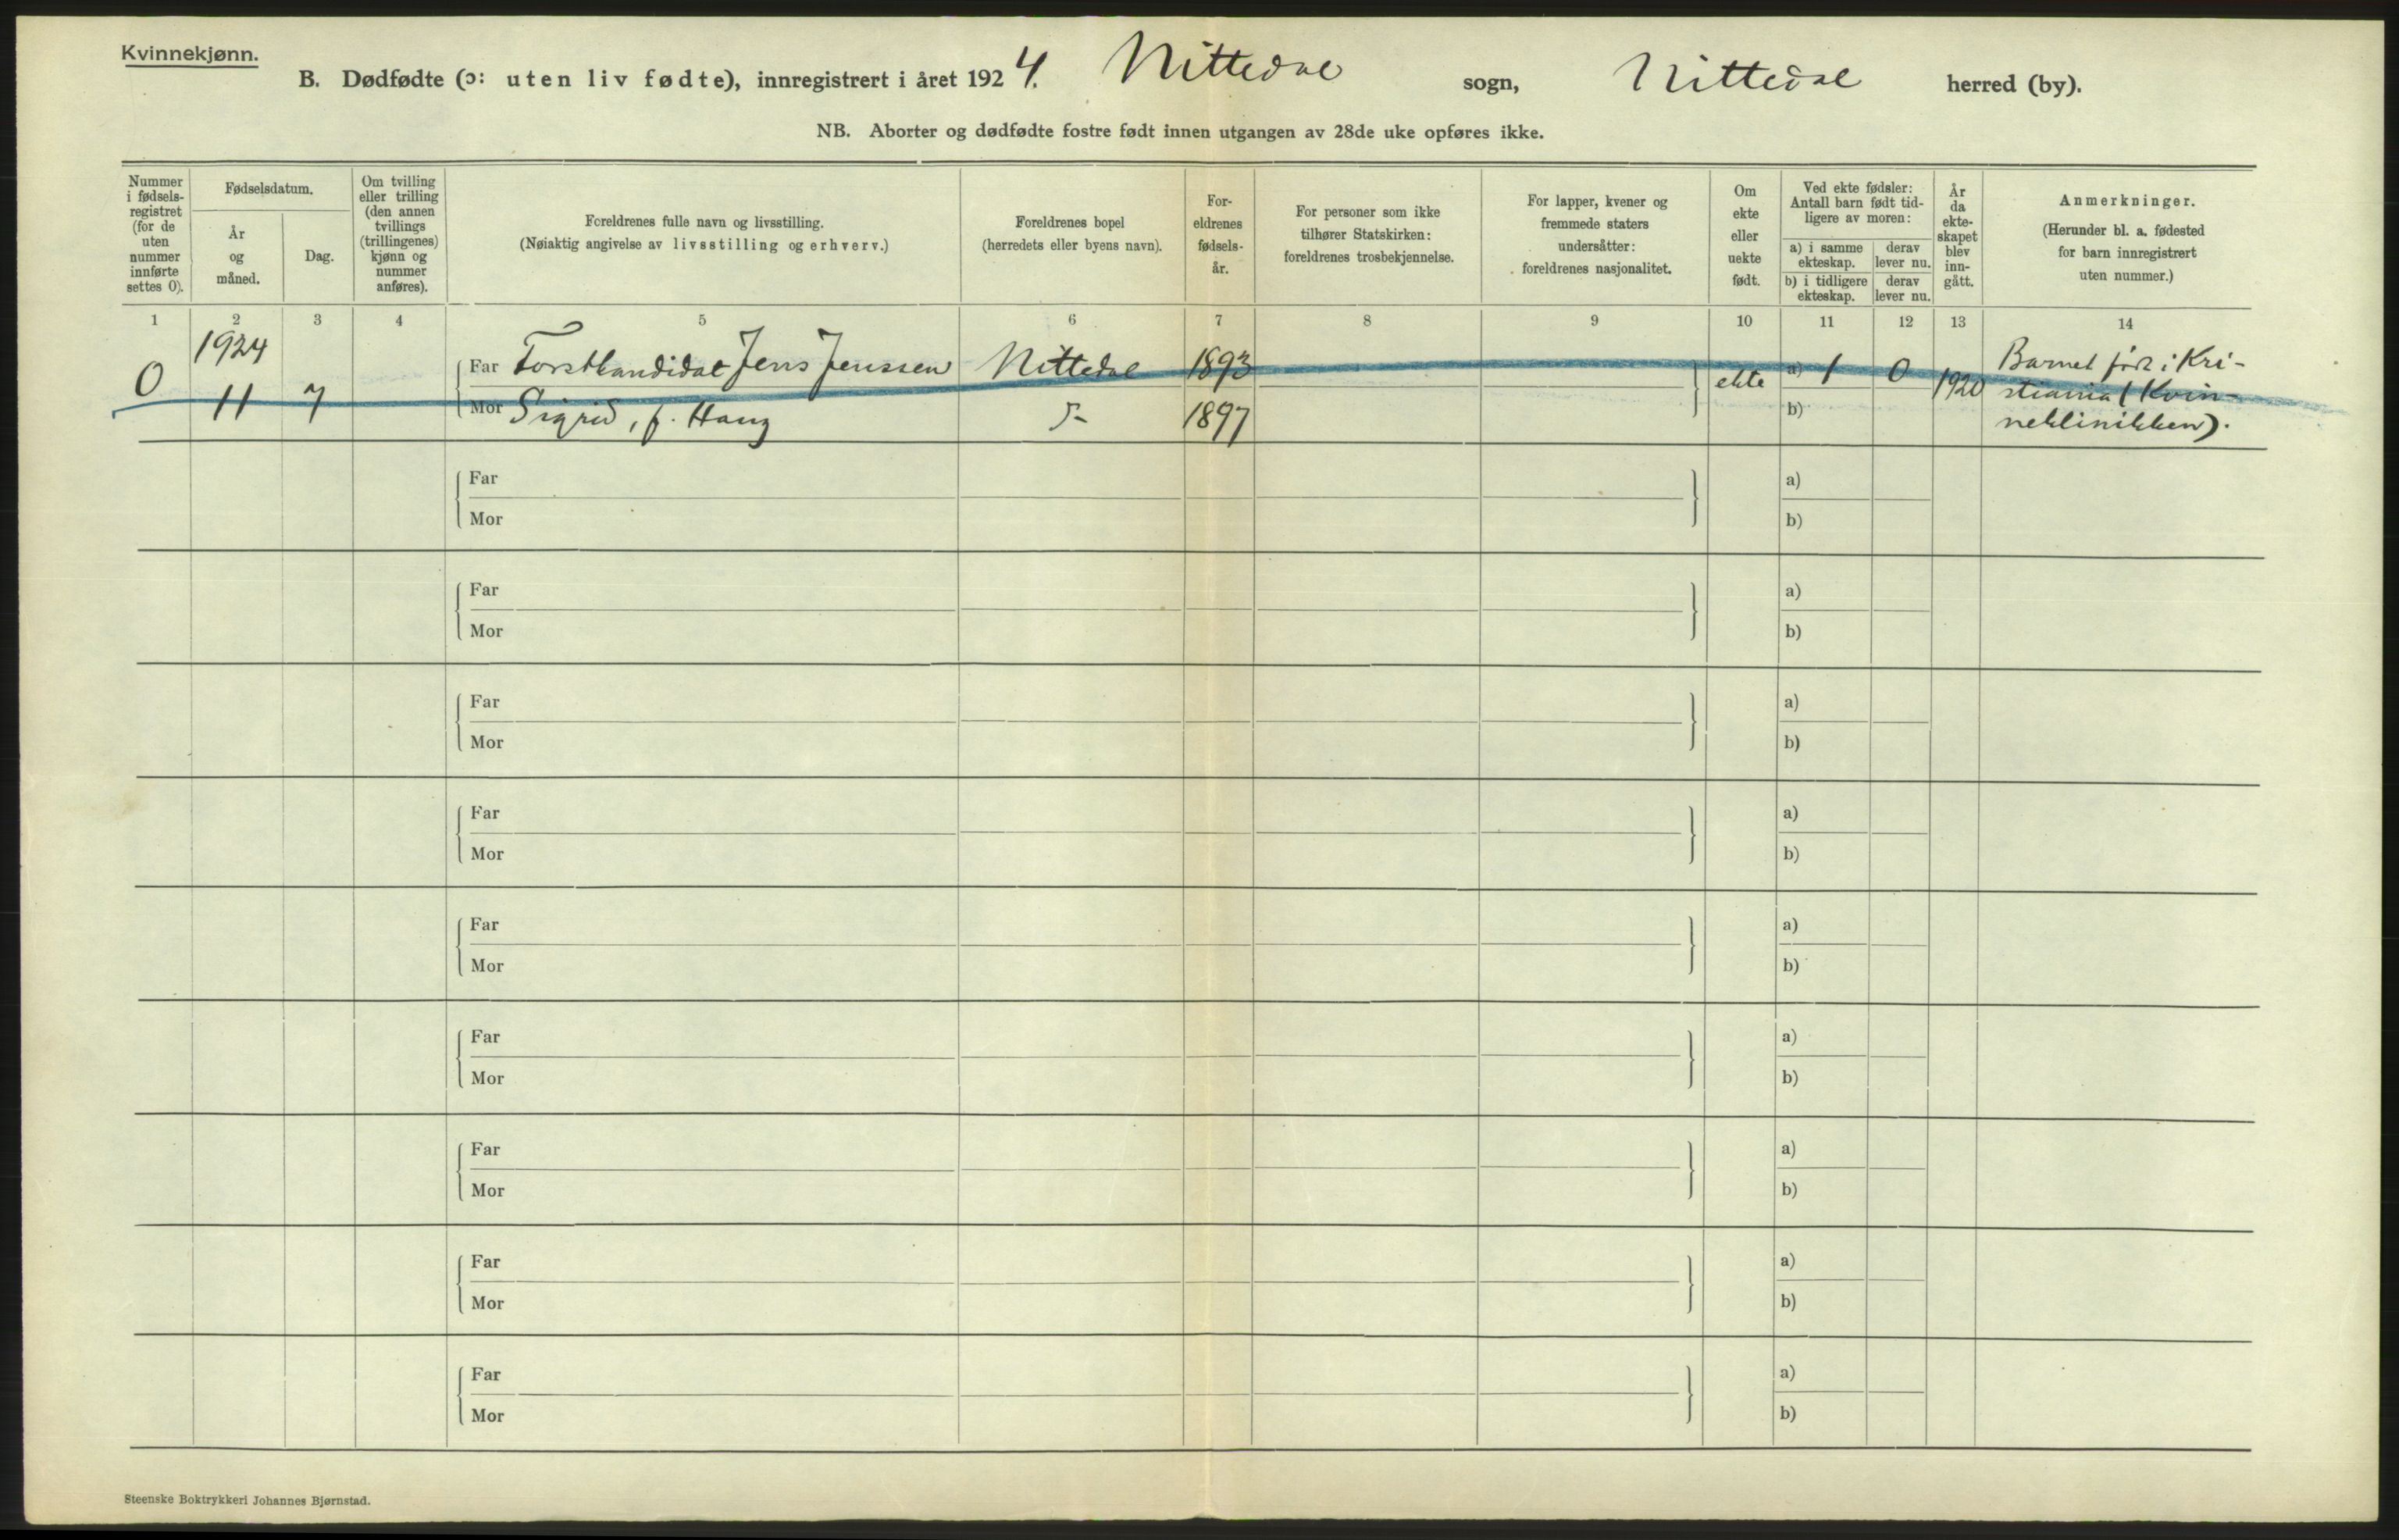 Kvinnekjønn.
B. Dødfødte (ɔ: uten liv fødte), innregistrert i året 1924. Nittedal sogn, Nittedal herred (by).
NB. Aborter og dødfødte fostre født innen utgangen av 28de uke opføres ikke.
Nummer
i fødsels-
registret
(for de
uten
nummer
innførte
settes 0).
Fødselsdatum.
År
og
måned.
Dag.
Om tvilling
eller trilling
(den annen
tvillings
(trillingenes)
kjønn og
nummer
anføres).
Foreldrenes fulle navn og livsstilling.
(Nøiaktig angivelse av livsstilling og erhverv.)
Foreldrenes bopel
(herredets eller byens navn).
For-
eldrenes
fødsels-
år.
For personer som ikke
tilhører Statskirken:
foreldrenes trosbekjennelse.
For lapper, kvener og
fremmede staters
undersåtter:
foreldrenes nasjonalitet.
Om
ekte
eller
uekte
født.
Ved ekte fødsler:
Antall barn født tid-
ligere av moren:
a) i samme
ekteskap.
derav
lever nu.
b) i tidligere
ekteskap.
derav
lever nu.
År
da
ekte-
skapet
blev
inn-
gått.
Anmerkninger.
(Herunder bl. a. fødested
for barn innregistrert
uten nummer.)
1 2 3 4 5 6 7 8 9 10 11 12 13 14
0
1924
11 7
Far Forstkandidat Jens Jenssen Nittedal 1893
Mor Sigrid, f. Haug 1897
ekte
a) 1 0
b)
1920
Barnet født i Kri-
stiania (Kvin-
neklinikken).
Far a)
Mor b)
Far a)
Mor b)
Far a)
Mor b)
Far a)
Mor b)
Far a)
Mor b)
Far a)
Mor b)
Far a)
Mor b)
Far a)
Mor b)
Far a)
Mor b)
Steenske Boktrykkeri Johannes Bjørnstad.